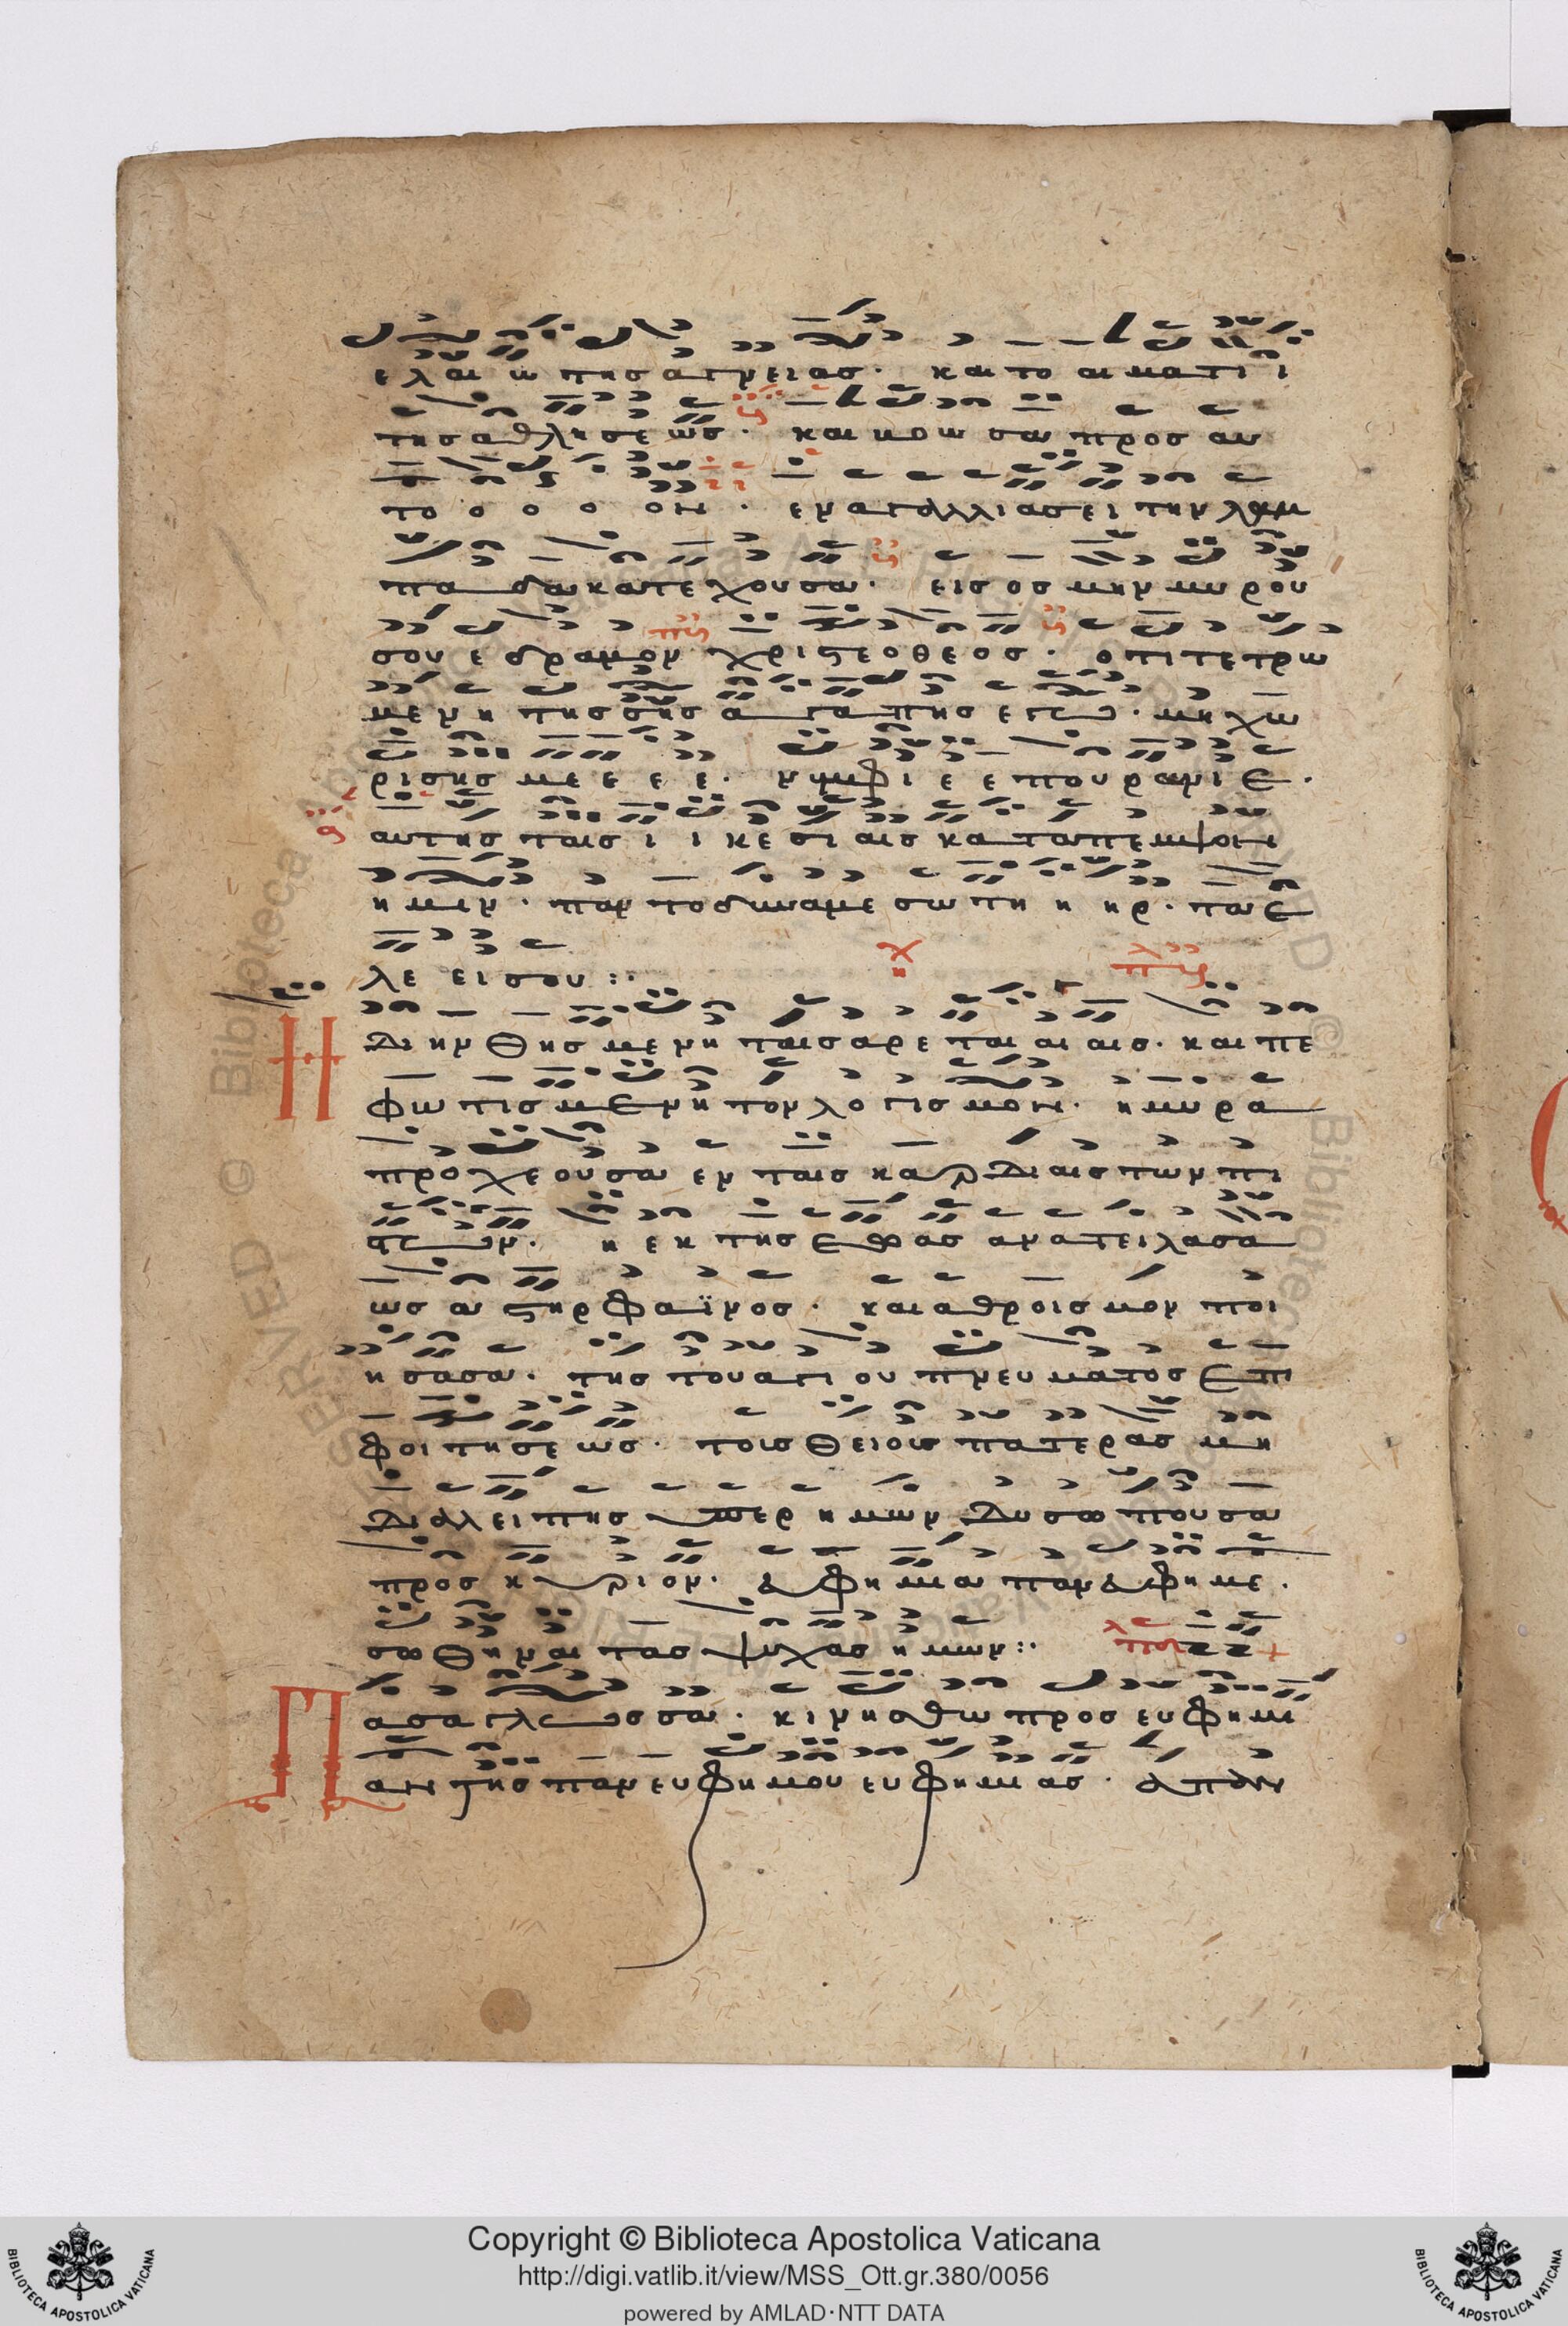 ελαι ω της αγνειας · και το αι μα τι ι
της αθλησε ως · και κρω σω προς αυ
το ο ο ο ον · εν αγαλλιασει την λαμ
πα δα κατεχουσα · εις οσμην μυρου
σου εδραμον χριστε ο θεος · οτι τετρω
μενη της σης α γα πης εγω · μη χω
ρισης με ε ε ε · νυμφι ε ε πουρανιε ·
αυτης ταις ι ι κεσι αις κα ταπεμψον
ημιν · παντοδυναμε σωτη η ηρ · τα ε
λε ει σου :·
Η
Διηνθησμενη ταις αρε ται αι αις · και πε
φωτισμενη τον λογισμον · η μυρα
προχεουσα εν ταις καρδιαις των πι
στων · η εκ της εωας ανατειλασα
ως αστηρ φαϊνος · και αθροισμον ποι
ησασα · της του αγι ου πνευματος επι
φοιτησε ως · τοις θειοις πατερας μη
Διαλειπης υπερ ημων Δυσωπουσα
προς κυριον · Ευφημια πανευφημε ·
σωθηναι τας ψυχας ημων :·
Π
ασα γλωσσα · κινησθω προς ευφημι
αν της πανευφημου ευφημιας · απαν
Copyright © Biblioteca Apostolica Vaticana
http://digi.vatlib.it/view/MSS_Ott.gr.380/0056
powered by AMLAD·NTT DATA
BIBLIOTECA APOSTOLICA VATICANA
BIBLIOTECA APOSTOLICA VATICANA